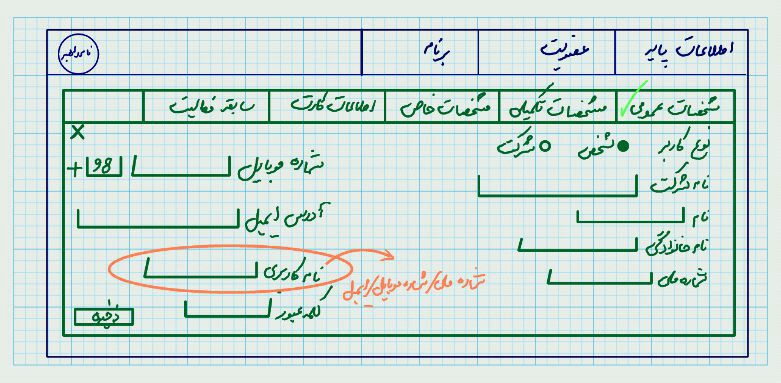 اطلاعات پایه
عضویت
برنامه
مشخصات عمومی ✓
مشخصات تکمیلی
مشخصات خاص
اطلاعات کارت
سابقه فعالیت
X
نوع کاربر
شخص
شرکت
نام شرکت
نام
نام خانوادگی
شماره ملی
شماره موبایل
98 +
آدرس ایمیل
نام کاربری
شماره ملی/شماره موبایل/ایمیل
کلمه عبور
ذخیره